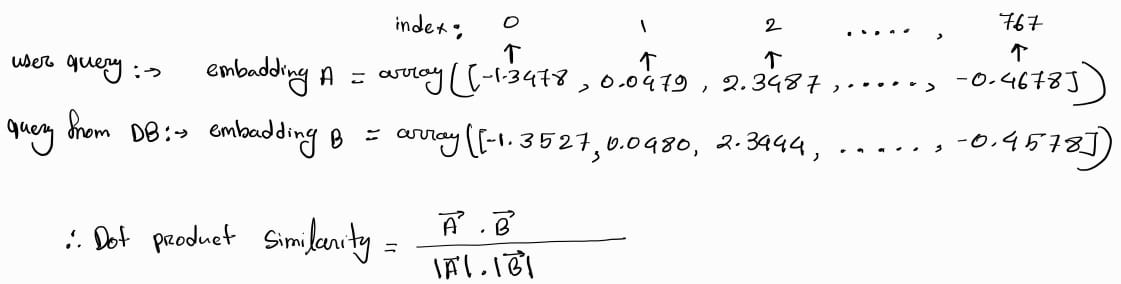 index: 0 1 2 ....., 767
↑ ↑ ↑ ↑
user query :→ embadding A = array([-1.3478, 0.0479, 2.3487, ......, -0.4678])
query from DB :→ embadding B = array([-1.3527, 0.0480, 2.3444, ....., -0.4578])
∴ Dot product similarity = A⃗ . B⃗
|A⃗| . |B⃗|